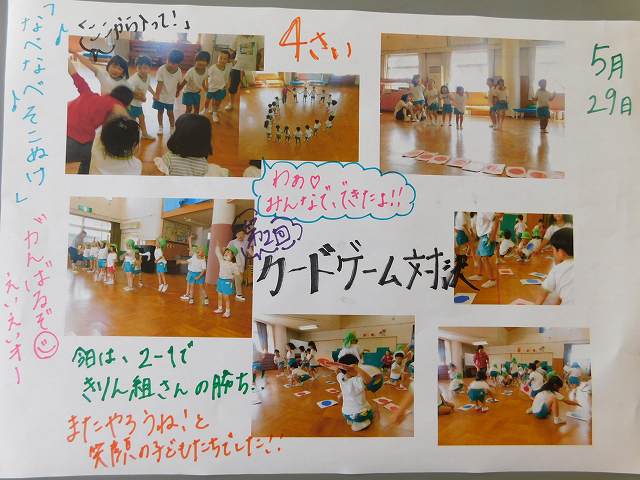 「ここから入って!」
4さい
5月
29日
「♪なべなべそこぬけ♪」
わぁ♡
みんなで、できたよ!!
第2回
カードゲーム対決
"がんばるぞ
えいえいオー
今日は、2-1で
きりん組さんの勝ち!!
またやろうね!と
笑顔の子どもたちでした!!